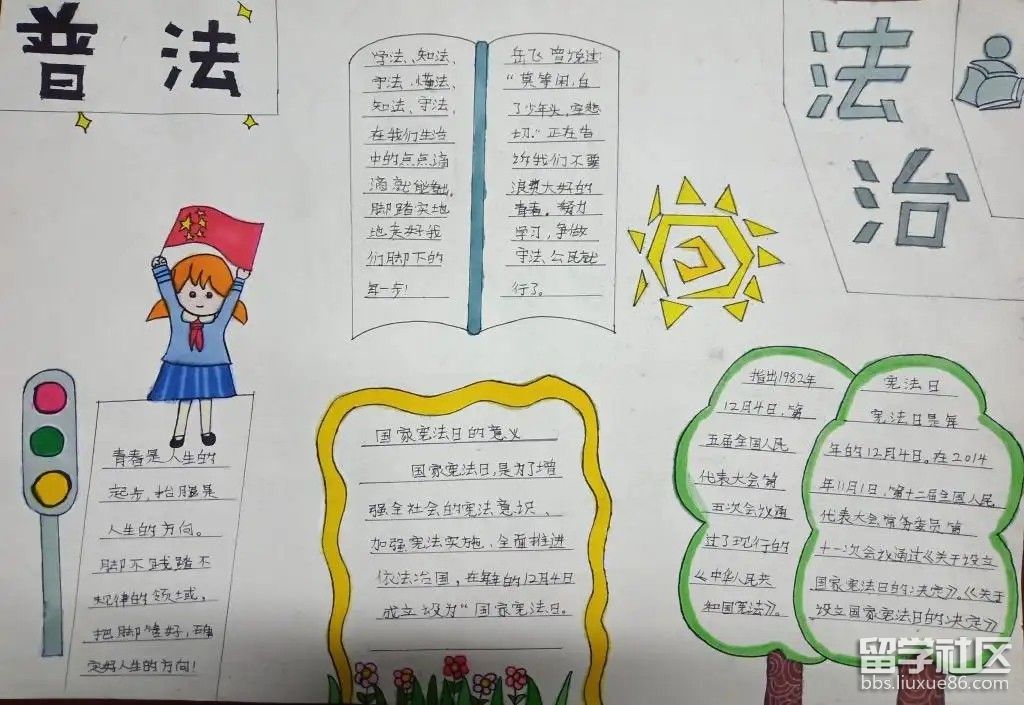 普法
法
治
学法、知法、
守法、懂法、
知法、守法、
在我们生活
中的点点滴
滴就能看出。
脚踏实地
地走好我
们脚下的
每一步!
岳飞曾说过:
“莫等闲,白
了少年头,空悲
切.”正在告
诉我们不要
浪费大好的
青春。努力
学习,争做
守法、公民就
行了。
青春是人生的
起步,抬腿是
人生的方向。
脚不踐踏不
规律的领域,
把脚管好,确
定好人生的方向!
国家宪法日的意义
国家宪法日,是为了增
强全社会的宪法意识、
加强宪法实施、全面推进
依法治国,在每年的12月4日
成立设为“国家宪法日。
指出1982年
12月4日,第
五届全国人民
代表大会第
五次会议通
过了现行的
《中华人民共
和国宪法》。
宪法日
宪法日是每
年的12月4日。在2014
年11月1日,第十二届全国人民
代表大会常务委员第
十一次会议通过《关于设立
国家宪法日的决定》。《关于
设立国家宪法日的决定》
留学社区
bbs.liuxue86.com